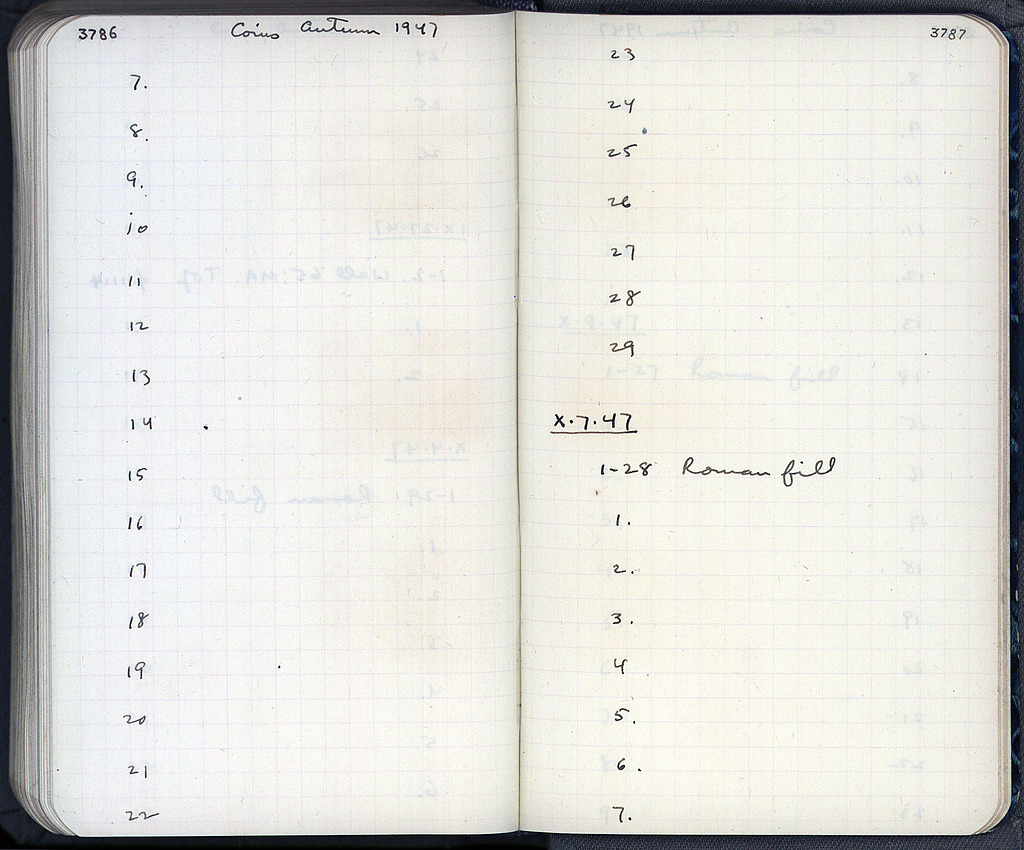 3786
Coins Autumn 1947
7.
8.
9.
10
11
12
13
14
15
16
17
18
19
20
21
22
3787
23
24
25
26
27
28
29
X.7.47
1-28 Roman fill
1.
2.
3.
4
5.
6.
7.